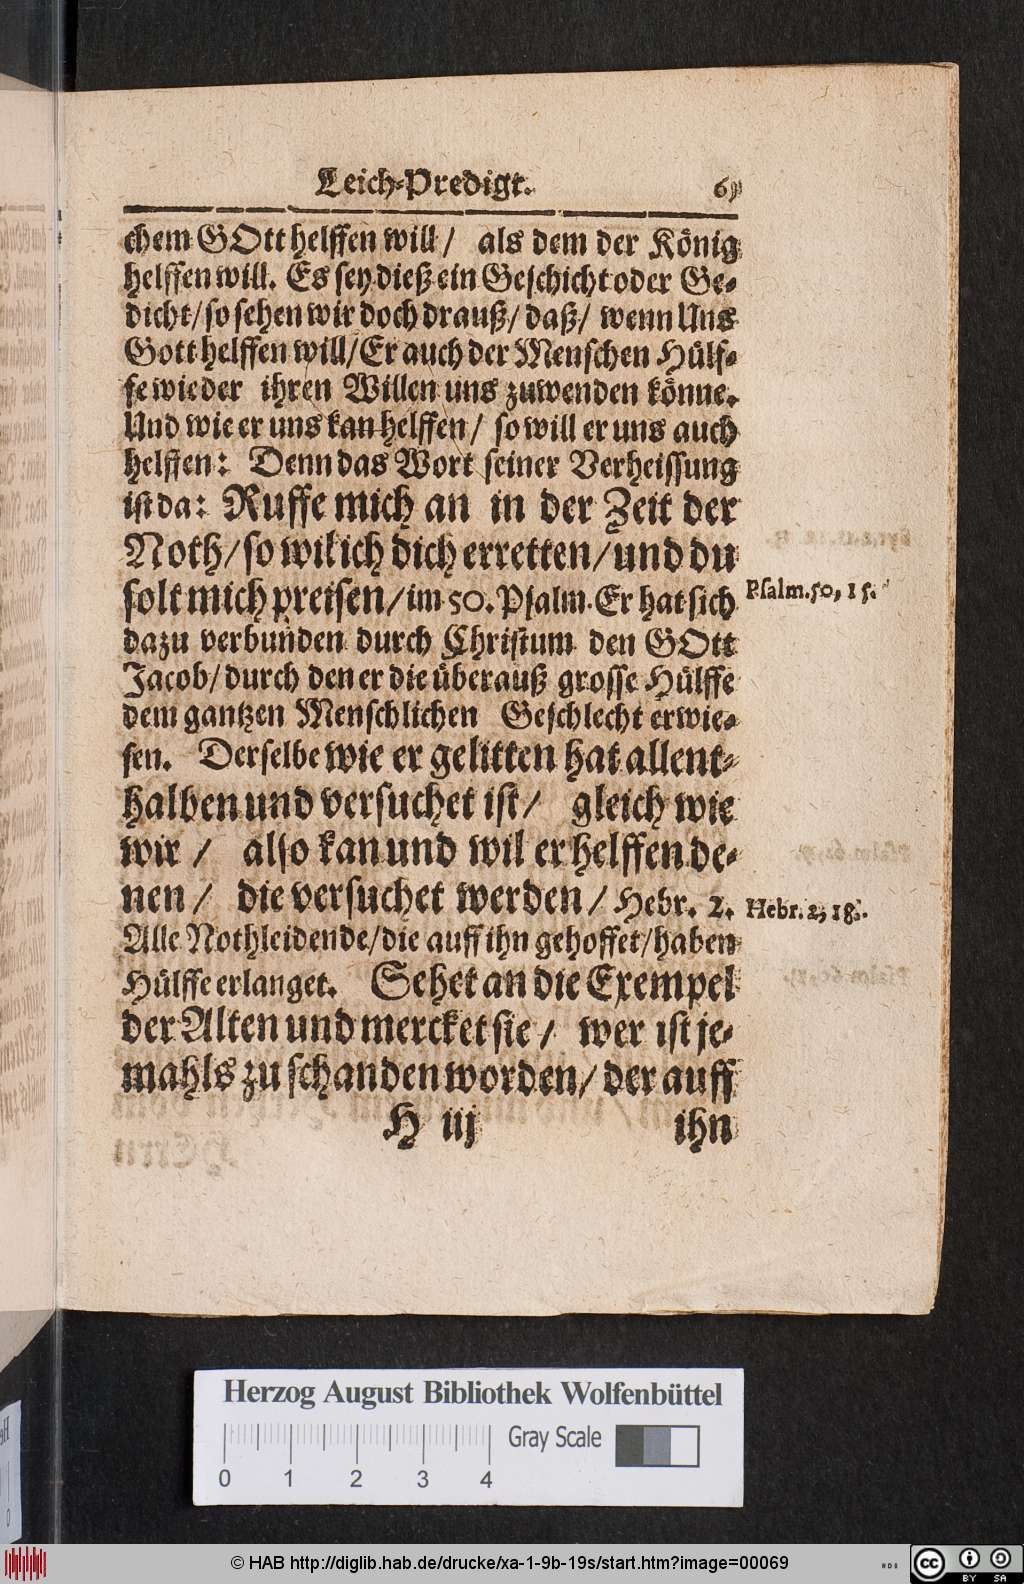 Leich-Predigt. 61
chem GOtt helffen will / als dem der König
helffen will. Es sey dieß ein Geschicht oder Ge-
dicht / so sehen wir doch drauß / daß / wenn Uns
Gott helffen will / Er auch der Menschen Hülf-
fe wieder ihren Willen uns zuwenden könne.
Und wie er uns kan helffen / so will er uns auch
helffen: Denn das Wort seiner Verheissung
ist da: Ruffe mich an in der Zeit der
Noth / so wil ich dich erretten / und du
solt mich preisen / im 50. Psalm. Er hat sich
Psalm. 50, 15.
dazu verbunden durch Christum den GOtt
Jacob / durch den er die überauß grosse Hülffe
dem gantzen Menschlichen Geschlecht erwie-
sen. Derselbe wie er gelitten hat allent-
halben und versuchet ist / gleich wie
wir / also kan und wil er helffen de-
nen / die versuchet werden / Hebr. 2.
Hebr. 2, 18.
Alle Nothleidende / die auff ihn gehoffet / haben
Hülffe erlanget. Sehet an die Exempel
der Alten und mercket sie / wer ist je-
mahls zu schanden worden / der auff
H iij ihn
Herzog August Bibliothek Wolfenbüttel
Gray Scale
0 1 2 3 4
© HAB http://diglib.hab.de/drucke/xa-1-9b-19s/start.htm?image=00069
cc BY SA